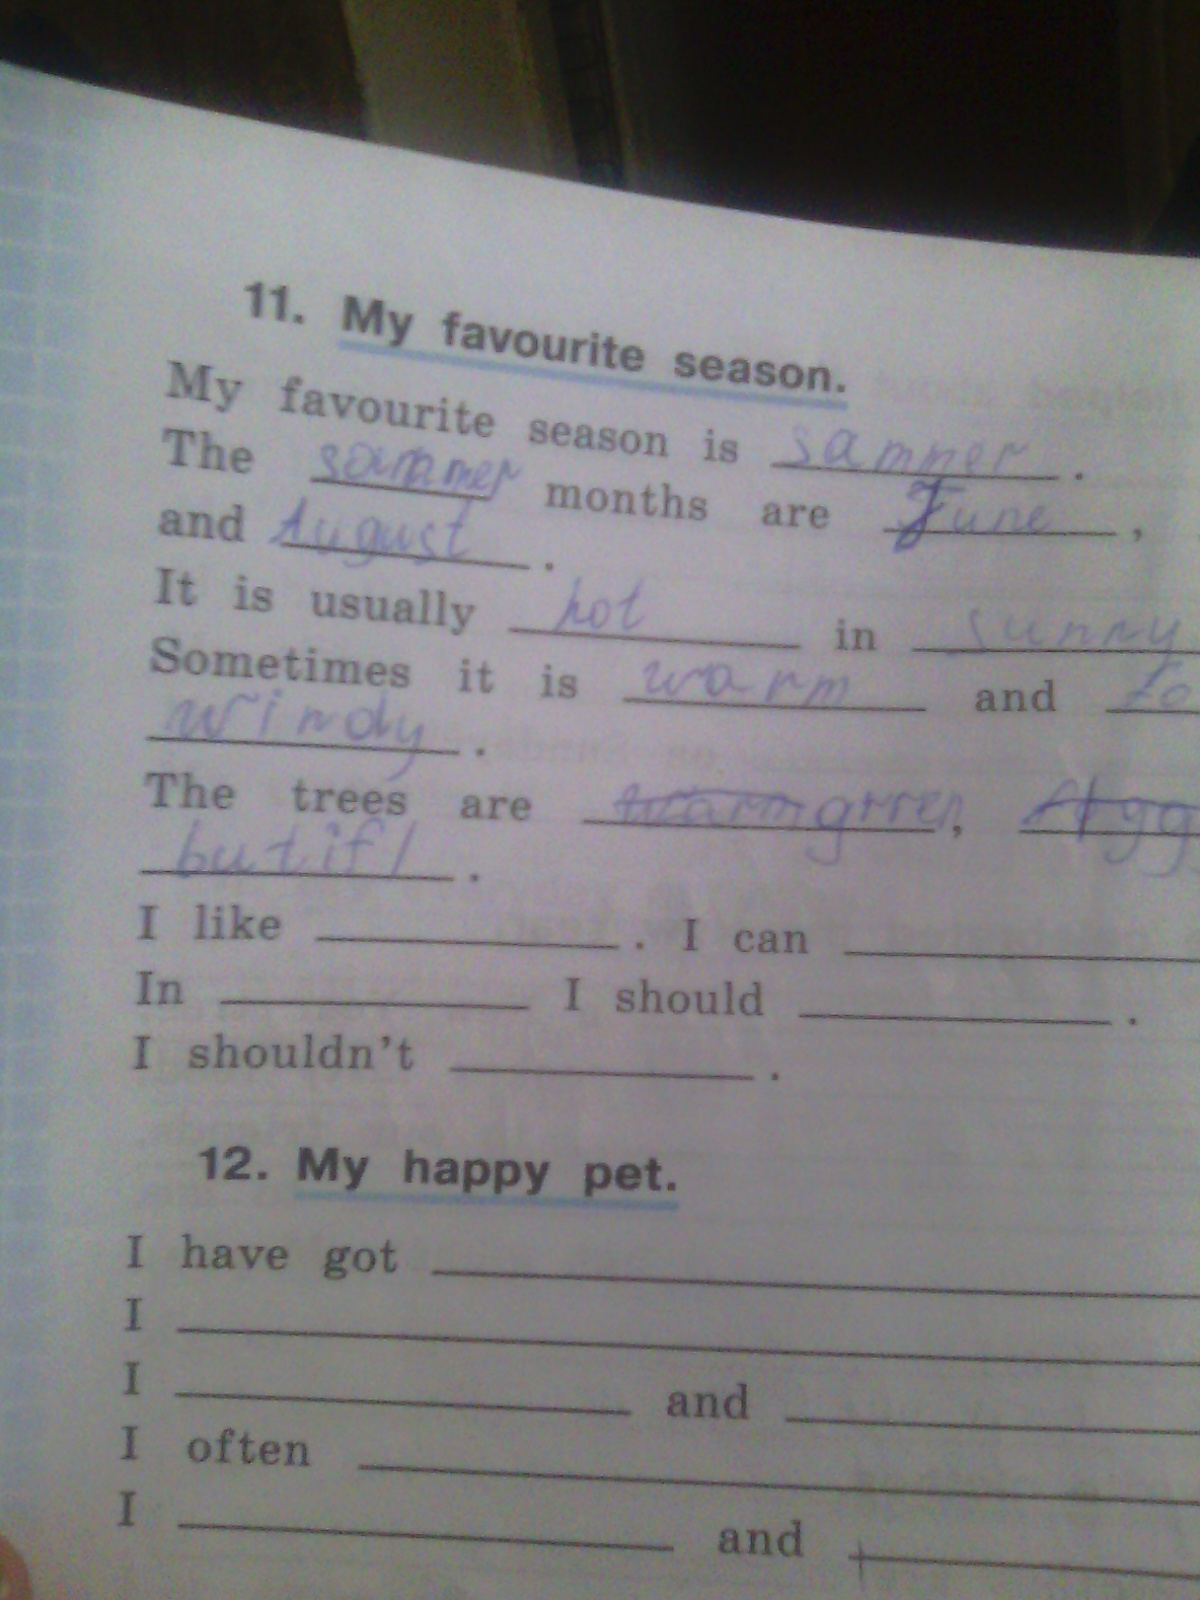 11. My favourite season.
My favourite season is sammer.
The sammer months are June,
and August.
It is usually hot in sunny
Sometimes it is warm and
windy.
The trees are warm grren,
butifl.
I like ____. I can ____
In ____ I should ____.
I shouldn't ____.
12. My happy pet.
I have got ____
I ____
I ____ and ____
I often ____
I ____ and ____